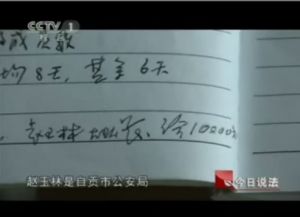 CCTV 1
成次数
均8天,基金6天
赵玉林 给10000
赵玉林是自贡市公安局
今日说法